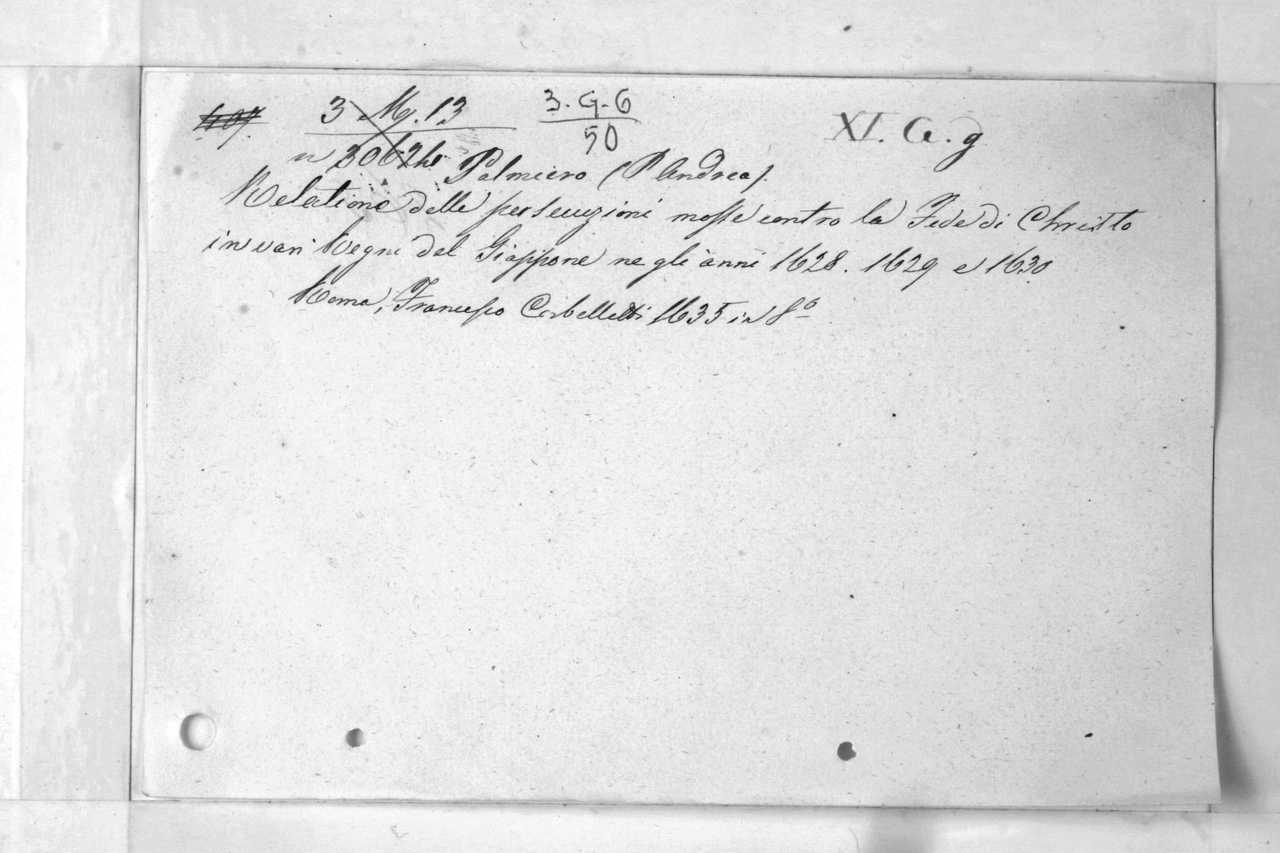 3 M. 13 3. G. 6 XI. G. g
50
Palmiero (P. Andrea).
Relatione delle persecuzioni mosse contro la Fede di Christo
in vari Regni del Giappone negli anni 1628. 1629 e 1630
Roma, Francesco Corbelletti 1635 in 8º